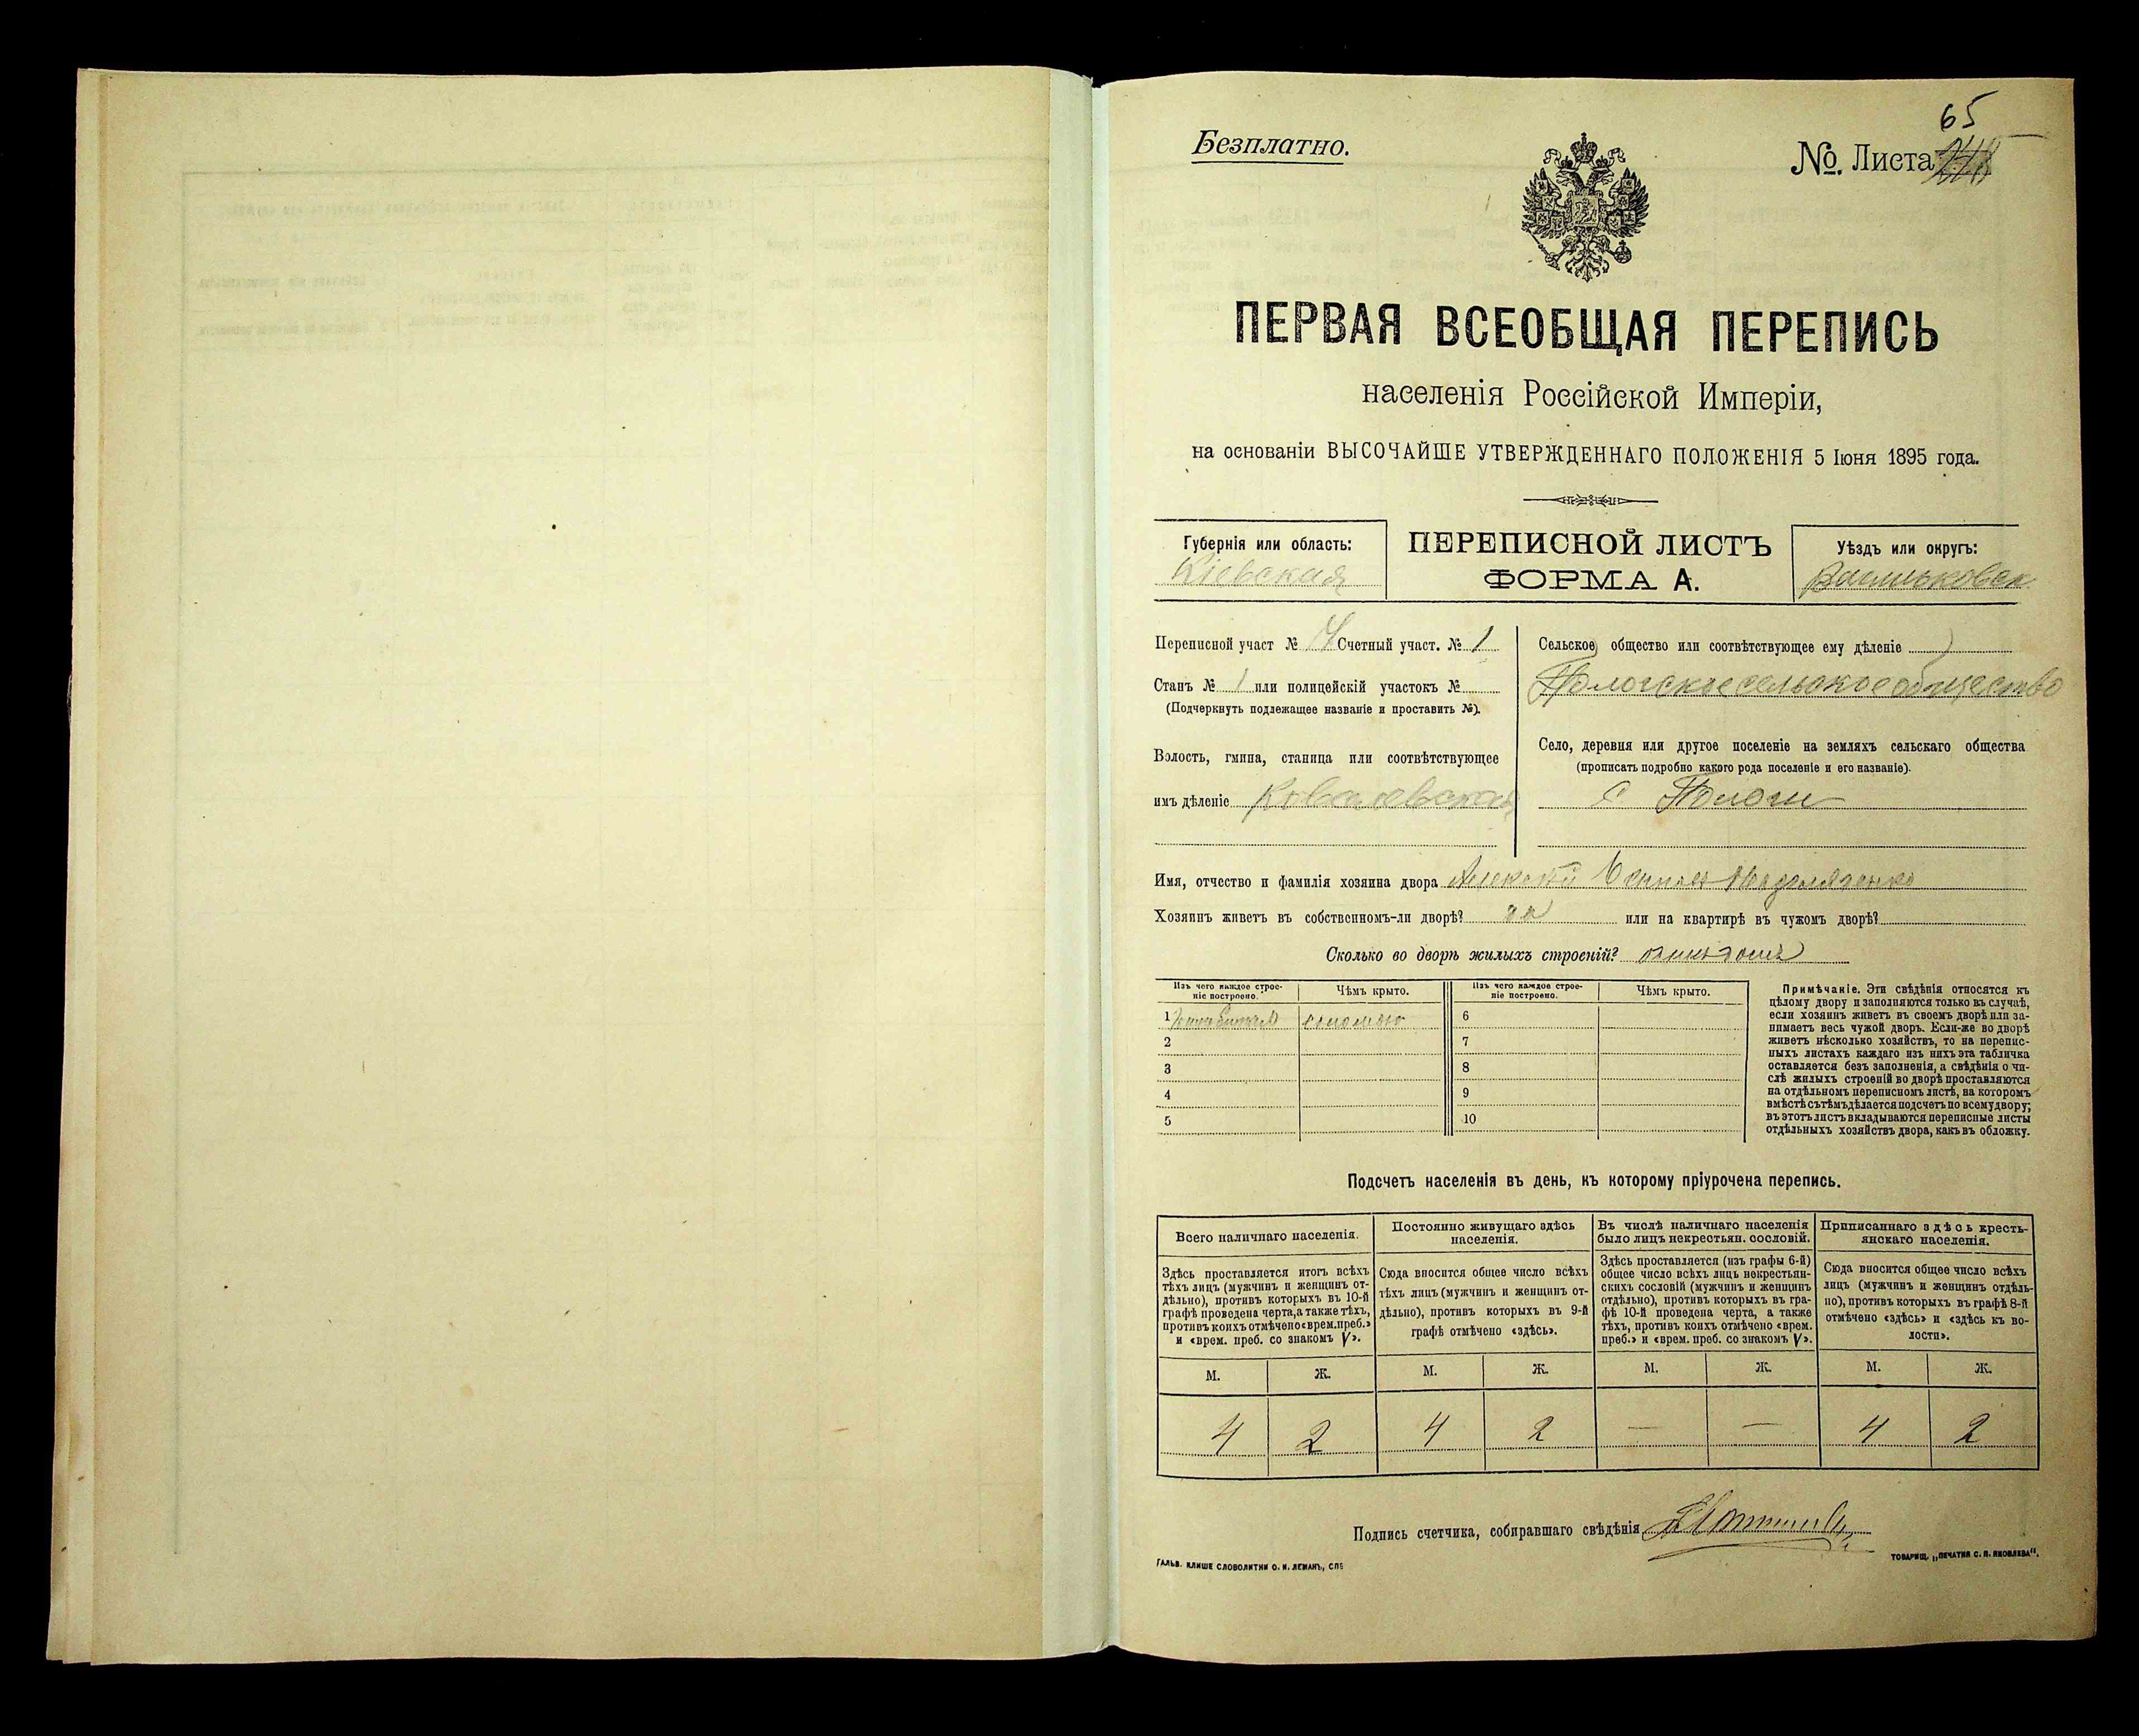 65
Безплатно.
№. Листа
ПЕРВАЯ ВСЕОБЩАЯ ПЕРЕПИСЬ
населенія Россійской Имперіи,
на основаніи ВЫСОЧАЙШЕ УТВЕРЖДЕННАГО ПОЛОЖЕНІЯ 5 Іюня 1895 года.
Губернія или область:
Кіевская
ПЕРЕПИСНОЙ ЛИСТЪ
ФОРМА А.
Уѣздъ или округъ:
Васильковск
Переписной участ № Счетный участ. № 1
Станъ № 1 или полицейскій участокъ №
(Подчеркнуть подлежащее названіе и проставить №).
Волость, гмина, станица или соотвѣтствующее
имъ дѣленіе Ковалевская
Сельское общество или соотвѣтствующее ему дѣленіе
Пологское сельское общество
Село, деревня или другое поселеніе на земляхъ сельскаго общества
(прописать подробно какого рода поселеніе и его названіе).
с Пологи
Имя, отчество и фамилія хозяина двора Алексѣй
Хозяинъ живетъ въ собственномъ-ли дворѣ? да или на квартирѣ въ чужомъ дворѣ?
Сколько во дворѣ жилыхъ строеній?
Изъ чего каждое строе-
ніе построено.
Чѣмъ крыто.
Изъ чего каждое строе-
ніе построено.
Чѣмъ крыто.
1 соломою 6
2 7
3 8
4 9
5 10
Примѣчаніе. Эти свѣдѣнія относятся къ
цѣлому двору и заполняются только въ случаѣ,
если хозяинъ живетъ въ своемъ дворѣ или за-
нимаетъ весь чужой дворъ. Если-же во дворѣ
живетъ нѣсколько хозяйствъ, то на перепис-
ныхъ листахъ каждаго изъ нихъ эта табличка
оставляется безъ заполненія, а свѣдѣнія о чи-
слѣ жилыхъ строеній во дворѣ проставляются
на отдѣльномъ переписномъ листѣ, на которомъ
вмѣстѣ съ тѣмъ дѣлается подсчетъ по всему двору;
въ этотъ листъ вкладываются переписные листы
отдѣльныхъ хозяйствъ двора, какъ въ обложку.
Подсчетъ населенія въ день, къ которому пріурочена перепись.
Всего наличнаго населенія.
Здѣсь проставляется итогъ всѣхъ
тѣхъ лицъ (мужчинъ и женщинъ от-
дѣльно), противъ которыхъ въ 10-й
графѣ проведена черта, а также тѣхъ,
противъ коихъ отмѣчено «врем. преб.»
и «врем. преб. со знакомъ V».
Постоянно живущаго здѣсь
населенія.
Сюда вносится общее число всѣхъ
тѣхъ лицъ (мужчинъ и женщинъ от-
дѣльно), противъ которыхъ въ 9-й
графѣ отмѣчено «здѣсь».
Въ числѣ наличнаго населенія
было лицъ некрестьян. сословій.
Здѣсь проставляется (изъ графы 6-й)
общее число всѣхъ лицъ некрестьян-
скихъ сословій (мужчинъ и женщинъ
отдѣльно), противъ которыхъ въ гра-
фѣ 10-й проведена черта, а также
тѣхъ, противъ коихъ отмѣчено «врем.
преб.» и «врем. преб. со знакомъ V».
Приписаннаго здѣсь кресть-
янскаго населенія.
Сюда вносится общее число всѣхъ
лицъ (мужчинъ и женщинъ отдѣль-
но), противъ которыхъ въ графѣ 8-й
отмѣчено «здѣсь» и «здѣсь къ во-
лости».
М. Ж. М. Ж. М. Ж. М. Ж.
4 2 4 2 — — 4 2
Подпись счетчика, собиравшаго свѣдѣнія
ГАЛЬВ. КЛИШЕ СЛОВОЛИТНИ О. И. ЛЕМАНЪ, СПБ
ТОВАРИЩ. „ПЕЧАТНЯ С. П. ЯКОВЛЕВА“.